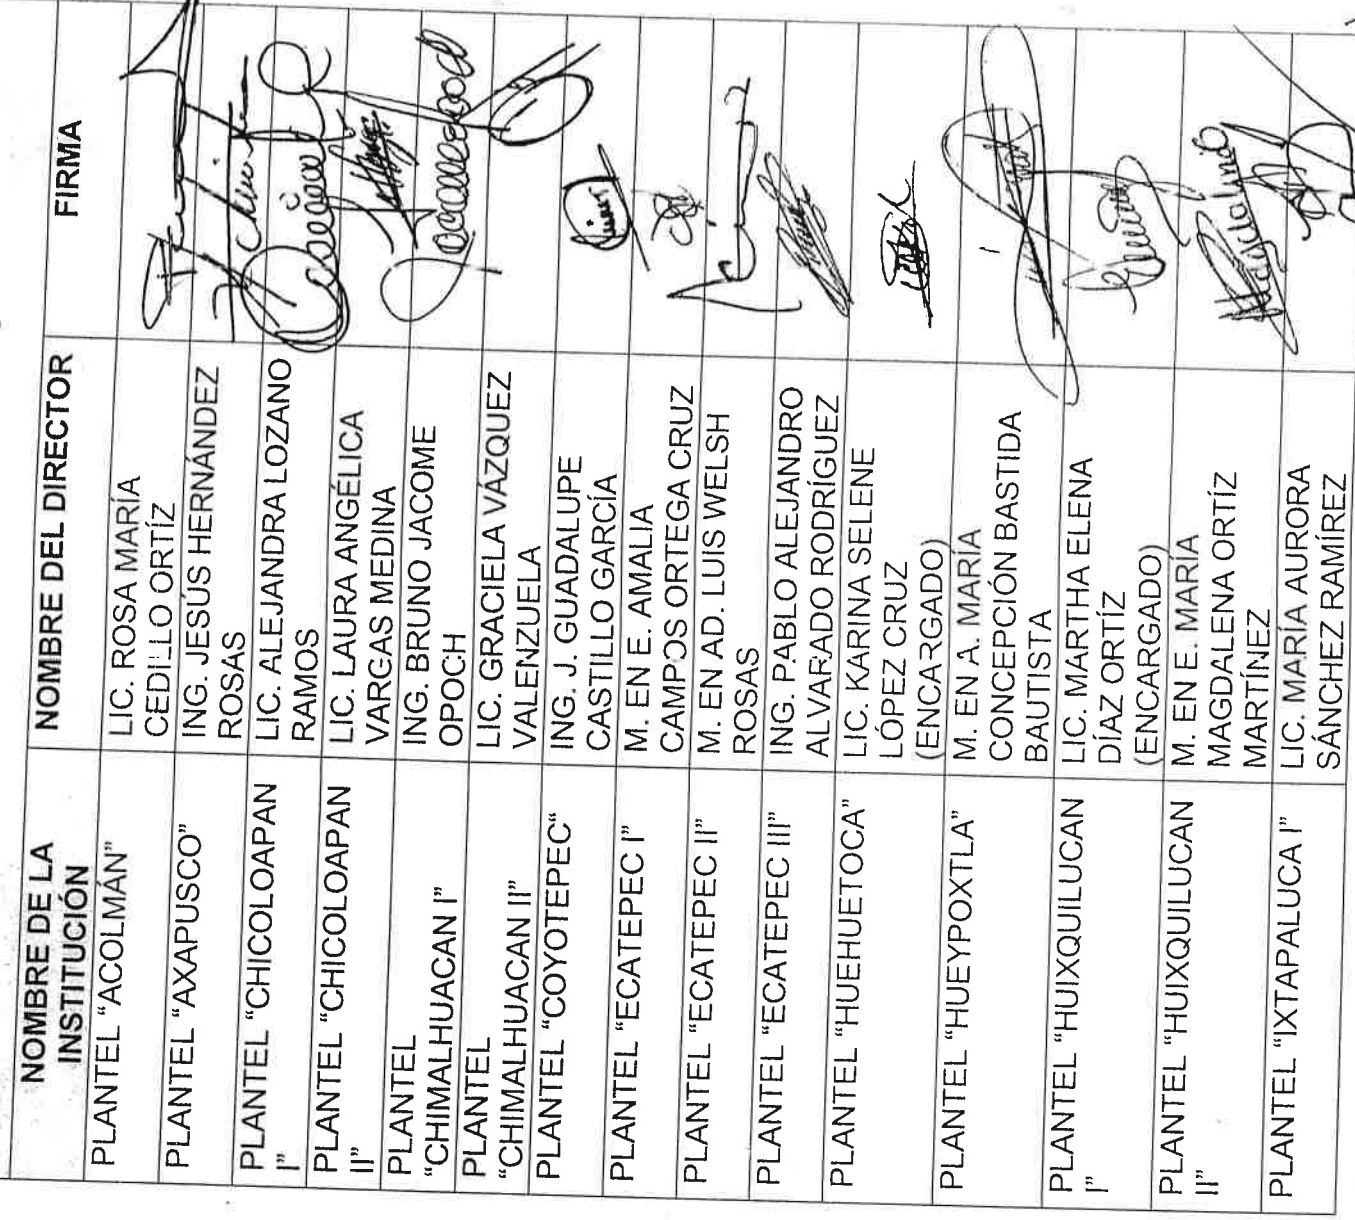 NOMBRE DE LA
INSTITUCIÓN
NOMBRE DEL DIRECTOR
FIRMA
PLANTEL “ACOLMÁN”
LIC. ROSA MARÍA
CEDILLO ORTÍZ
PLANTEL “AXAPUSCO”
ING. JESÚS HERNÁNDEZ
ROSAS
PLANTEL “CHICOLOAPAN
I”
LIC. ALEJANDRA LOZANO
RAMOS
PLANTEL “CHICOLOAPAN
II”
LIC. LAURA ANGÉLICA
VARGAS MEDINA
PLANTEL
“CHIMALHUACAN I”
ING. BRUNO JACOME
OPOCH
PLANTEL
“CHIMALHUACAN II”
LIC. GRACIELA VÁZQUEZ
VALENZUELA
PLANTEL “COYOTEPEC“
ING. J. GUADALUPE
CASTILLO GARCÍA
PLANTEL “ECATEPEC I”
M. EN E. AMALIA
CAMPOS ORTEGA CRUZ
PLANTEL “ECATEPEC II”
M. EN AD. LUIS WELSH
ROSAS
PLANTEL “ECATEPEC III”
ING. PABLO ALEJANDRO
ALVARADO RODRÍGUEZ
PLANTEL “HUEHUETOCA”
LIC. KARINA SELENE
LÓPEZ CRUZ
(ENCARGADO)
PLANTEL “HUEYPOXTLA”
M. EN A. MARÍA
CONCEPCIÓN BASTIDA
BAUTISTA
PLANTEL “HUIXQUILUCAN
I”
LIC. MARTHA ELENA
DÍAZ ORTÍZ
(ENCARGADO)
PLANTEL “HUIXQUILUCAN
II”
M. EN E. MARÍA
MAGDALENA ORTÍZ
MARTÍNEZ
Magdalena
PLANTEL “IXTAPALUCA I”
LIC. MARÍA AURORA
SÁNCHEZ RAMÍREZ